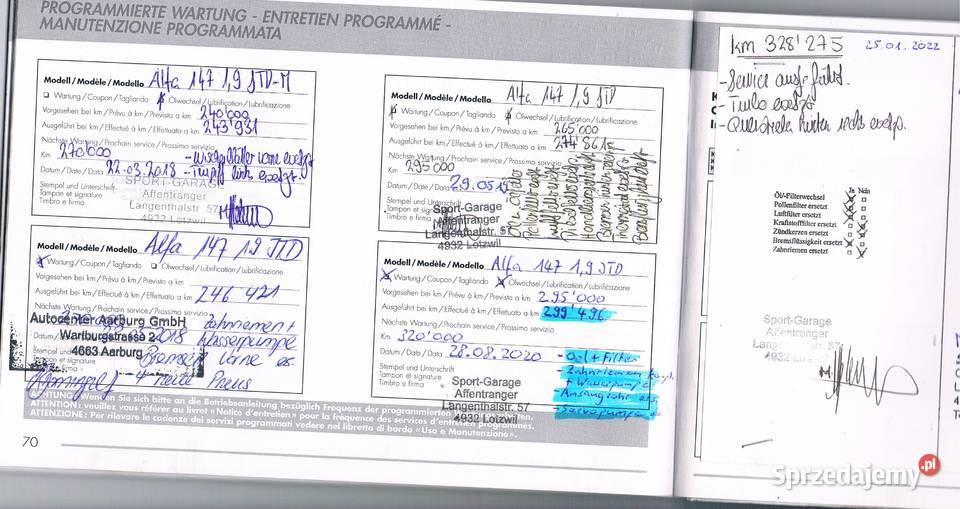 PROGRAMMIERTE WARTUNG - ENTRETIEN PROGRAMMÉ -
MANUTENZIONE PROGRAMMATA
Modell / Modèle / Modello Alfa 147 1,9 JTD-M
Wartung / Coupon / Tagliando Ölwechsel / Lubrification / Lubrificazione
Vorgesehen bei km / Prévu à km / Previsto a km 240'000
Ausgeführt bei km / Effectué à km / Effettuato a km 243'931
Nächste Wartung / Prochain service / Prossimo servizio
Km 270'000 - vorne ersetzt
Datum / Date / Data 22.03.2018 - links ersetzt
Stempel und Unterschrift
Tampon et signature
Timbro e firma
SPORT-GARAGE
Affentranger
Langenthalstr. 57
4932 Lotzwil
Modell / Modèle / Modello Alfa 147 1,9 JTD
Wartung / Coupon / Tagliando Ölwechsel / Lubrification / Lubrificazione
Vorgesehen bei km / Prévu à km / Previsto a km 265'000
Ausgeführt bei km / Effectué à km / Effettuato a km
Nächste Wartung / Prochain service / Prossimo servizio
Km 295'000
Datum / Date / Data 29.05
Stempel und Unterschrift
Tampon et signature
Timbro e firma
Sport-Garage
Affentranger
Langenthalstr. 57
4932 Lotzwil
Modell / Modèle / Modello Alfa 147 1,9 JTD
Wartung / Coupon / Tagliando Ölwechsel / Lubrification / Lubrificazione
Vorgesehen bei km / Prévu à km / Previsto a km
Ausgeführt bei km / Effectué à km / Effettuato a km 246 421
Nächste Wartung / Prochain service / Prossimo servizio
Autocenter Aarburg GmbH
Wartburgstrasse 2
4663 Aarburg
Zahnriemen +
Wasserpumpe
vorne
4 neue Pneus
Modell / Modèle / Modello Alfa 147 1,9 JTD
Wartung / Coupon / Tagliando Ölwechsel / Lubrification / Lubrificazione
Vorgesehen bei km / Prévu à km / Previsto a km 295'000
Ausgeführt bei km / Effectué à km / Effettuato a km 299'496
Nächste Wartung / Prochain service / Prossimo servizio
Km 320'000
Datum / Date / Data 28.08.2020
- Oel + Filter
- Zahnriemen
+ Wasserpumpe
- Ansaugrohr ers.
- Servopumpe
Stempel und Unterschrift
Tampon et signature
Timbro e firma
Sport-Garage
Affentranger
Langenthalstr. 57
4932 Lotzwil
ACHTUNG: Wenden Sie sich bitte an die Betriebsanleitung bezüglich Frequenz der programmierten
ATTENTION: veuillez vous référer au livret «Notice d'entretien» pour la fréquence des services d'entretien programmés.
ATTENZIONE: Per rilevare le cadenze dei servizi programmati vedere nel libretto di bordo «Uso e Manutenzione».
70
km 328'275 25.01.2022
- Service ausgeführt.
- Turbo ersetzt
- Querlenker hinten rechts ersetzt.
Ja Nein
Öl/-Filterwechsel
Pollenfilter ersetzt
Luftfilter ersetzt
Kraftstofffilter ersetzt
Zündkerzen ersetzt
Bremsflüssigkeit ersetzt
Zahnriemen ersetzt
Sport-Garage
Affentranger
Langenthalstr. 57
4932 Lotzwil
Sprzedajemy.pl